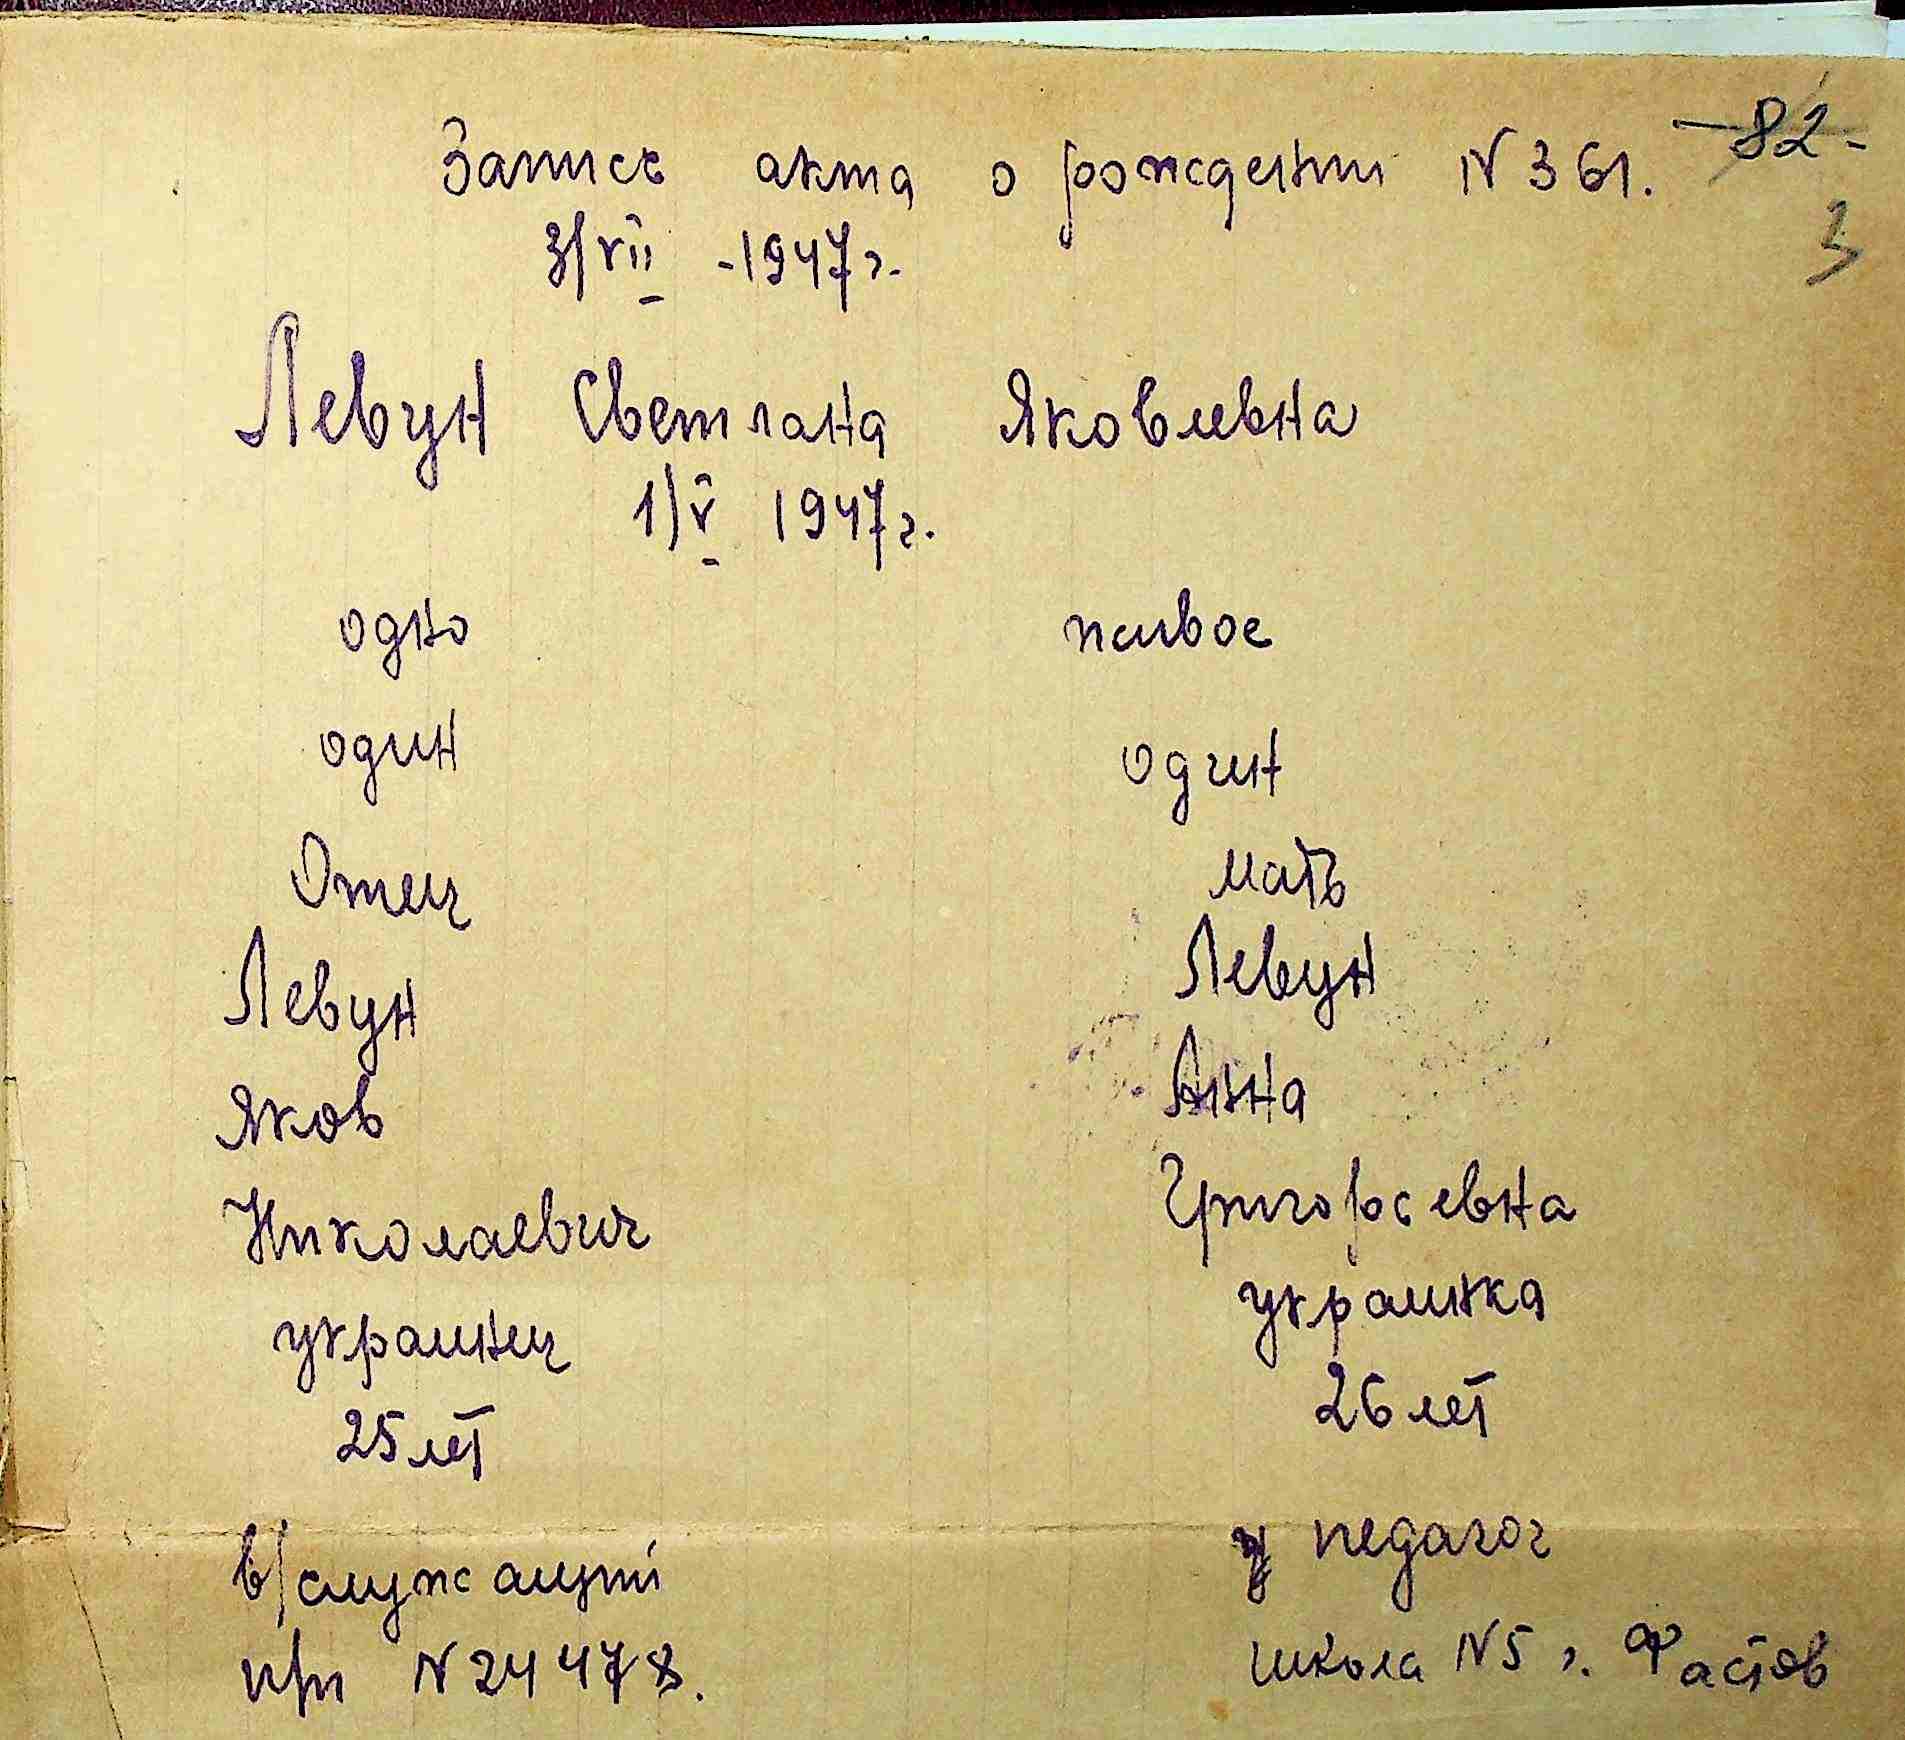 Запись акта о рождении N 361. -82-
3
3/VII -1947г.
Левун Светлана Яковлевна
1/V 1947г.
одно живое
один один
Отец мать
Левун Левун
Яков Анна
Николаевич Григорьевна
украинец украинка
25 лет 26 лет
в/служащий педагог
при N 24478. школа N5 г. Фастов